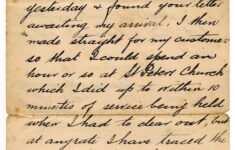 yesterday & found your letter
awaiting my arrival, I then
made straight for my customer
so that I could spend an
hour or so at St Peters Church
which I did up to within 10
minutes of service being held
when I had to clear out, but
at anyrate I have traced the